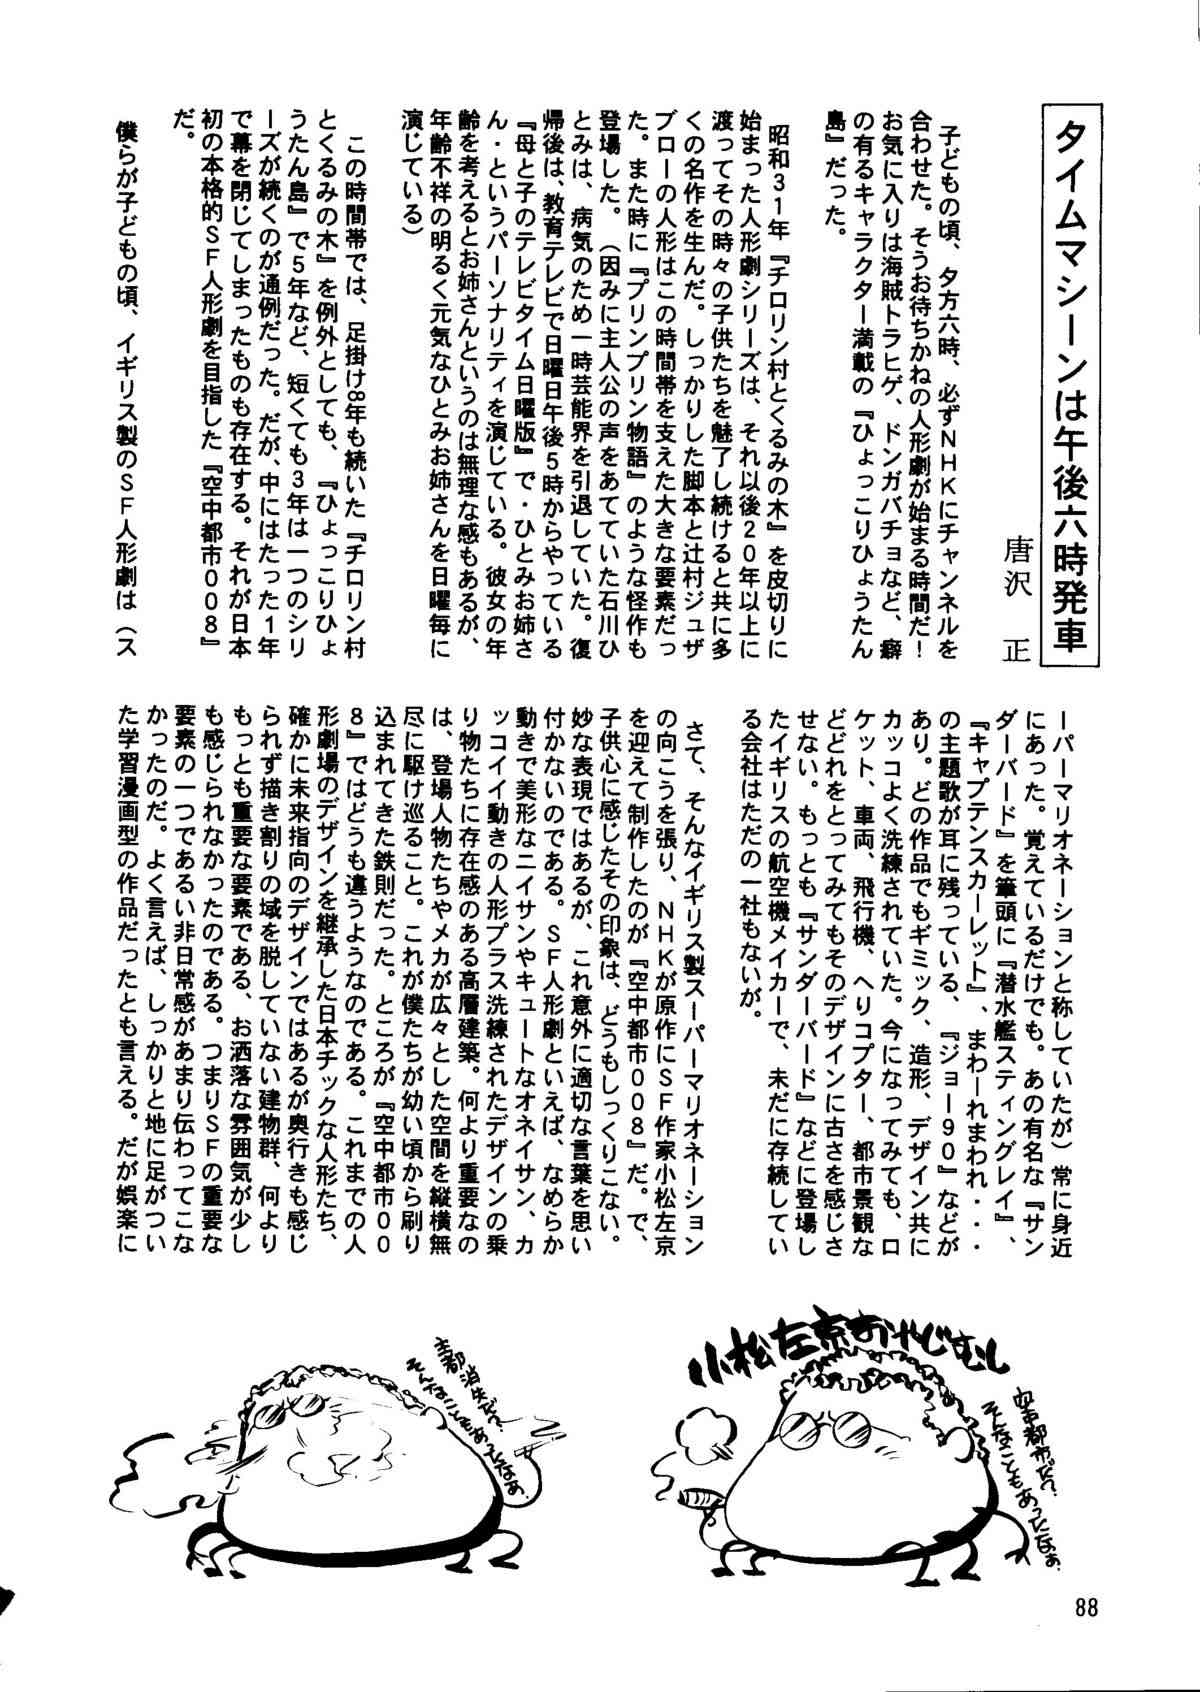 タイムマシーンは午後六時発車
唐沢 正
子どもの頃、夕方六時、必ずNHKにチャンネルを
合わせた。そうお待ちかねの人形劇が始まる時間だ！
お気に入りは海賊トラヒゲ、ドンガバチョなど、癖
の有るキャラクター満載の『ひょっこりひょうたん
島』だった。
昭和31年『チロリン村とくるみの木』を皮切りに
始まった人形劇シリーズは、それ以後20年以上に
渡ってその時々の子供たちを魅了し続けると共に多
くの名作を生んだ。しっかりした脚本と辻村ジュザ
ブローの人形はこの時間帯を支えた大きな要素だっ
た。また時に『プリンプリン物語』のような怪作も
登場した。（因みに主人公の声をあてていた石川ひ
とみは、病気のため一時芸能界を引退していた。復
帰後は、教育テレビで日曜日午後5時からやっている
『母と子のテレビタイム日曜版』で・ひとみお姉さ
ん・というパーソナリティを演じている。彼女の年
齢を考えるとお姉さんというのは無理な感もあるが、
年齢不祥の明るく元気なひとみお姉さんを日曜毎に
演じている）
この時間帯では、足掛け8年も続いた『チロリン村
とくるみの木』を例外としても、『ひょっこりひょ
うたん島』で5年など、短くても3年は一つのシリ
ーズが続くのが通例だった。だが、中にはたった1年
で幕を閉じてしまったものも存在する。それが日本
初の本格的SF人形劇を目指した『空中都市008』
だ。
僕らが子どもの頃、イギリス製のSF人形劇は（ス
ーパーマリオネーションと称していたが）常に身近
にあった。覚えているだけでも。あの有名な『サン
ダーバード』を筆頭に『潜水艦スティングレイ』、
『キャプテンスカーレット』、まわーれまわれ・・・
の主題歌が耳に残っている、『ジョー90』などが
あり。どの作品でもギミック、造形、デザイン共に
カッコよく洗練されていた。今になってみても、ロ
ケット、車両、飛行機、へリコプター、都市景観な
どどれをとってみてもそのデザインに古さを感じさ
せない。もっとも『サンダーバード』などに登場し
たイギリスの航空機メイカーで、未だに存続してい
る会社はただの一社もないが。
さて、そんなイギリス製スーパーマリオネーション
の向こうを張り、NHKが原作にSF作家小松左京
を迎えて制作したのが『空中都市008』だ。で、
子供心に感じたその印象は、どうもしっくりこない。
妙な表現ではあるが、これ意外に適切な言葉を思い
付かないのである。SF人形劇といえば、なめらか
動きで美形なニイサンやキュートなオネイサン、カ
ッコイイ動きの人形プラス洗練されたデザインの乗
り物たちに存在感のある高層建築。何より重要なの
は、登場人物たちやメカが広々とした空間を縦横無
尽に駆け巡ること。これが僕たちが幼い頃から刷り
込まれてきた鉄則だった。ところが『空中都市00
8』ではどうも違うようなのである。これまでの人
形劇場のデザインを継承した日本チックな人形たち、
確かに未来指向のデザインではあるが奥行きも感じ
られず描き割りの域を脱していない建物群、何より
もっとも重要な要素である、お洒落な雰囲気が少し
も感じられなかったのである。つまりSFの重要な
要素の一つであるい非日常感があまり伝わってこな
かったのだ。よく言えば、しっかりと地に足がつい
た学習漫画型の作品だったとも言える。だが娯楽に
小松左京おやじむし
空中都市だ？
そんなこともあったなぁ
首都消失だ？
そんなこともあったなぁ。
88